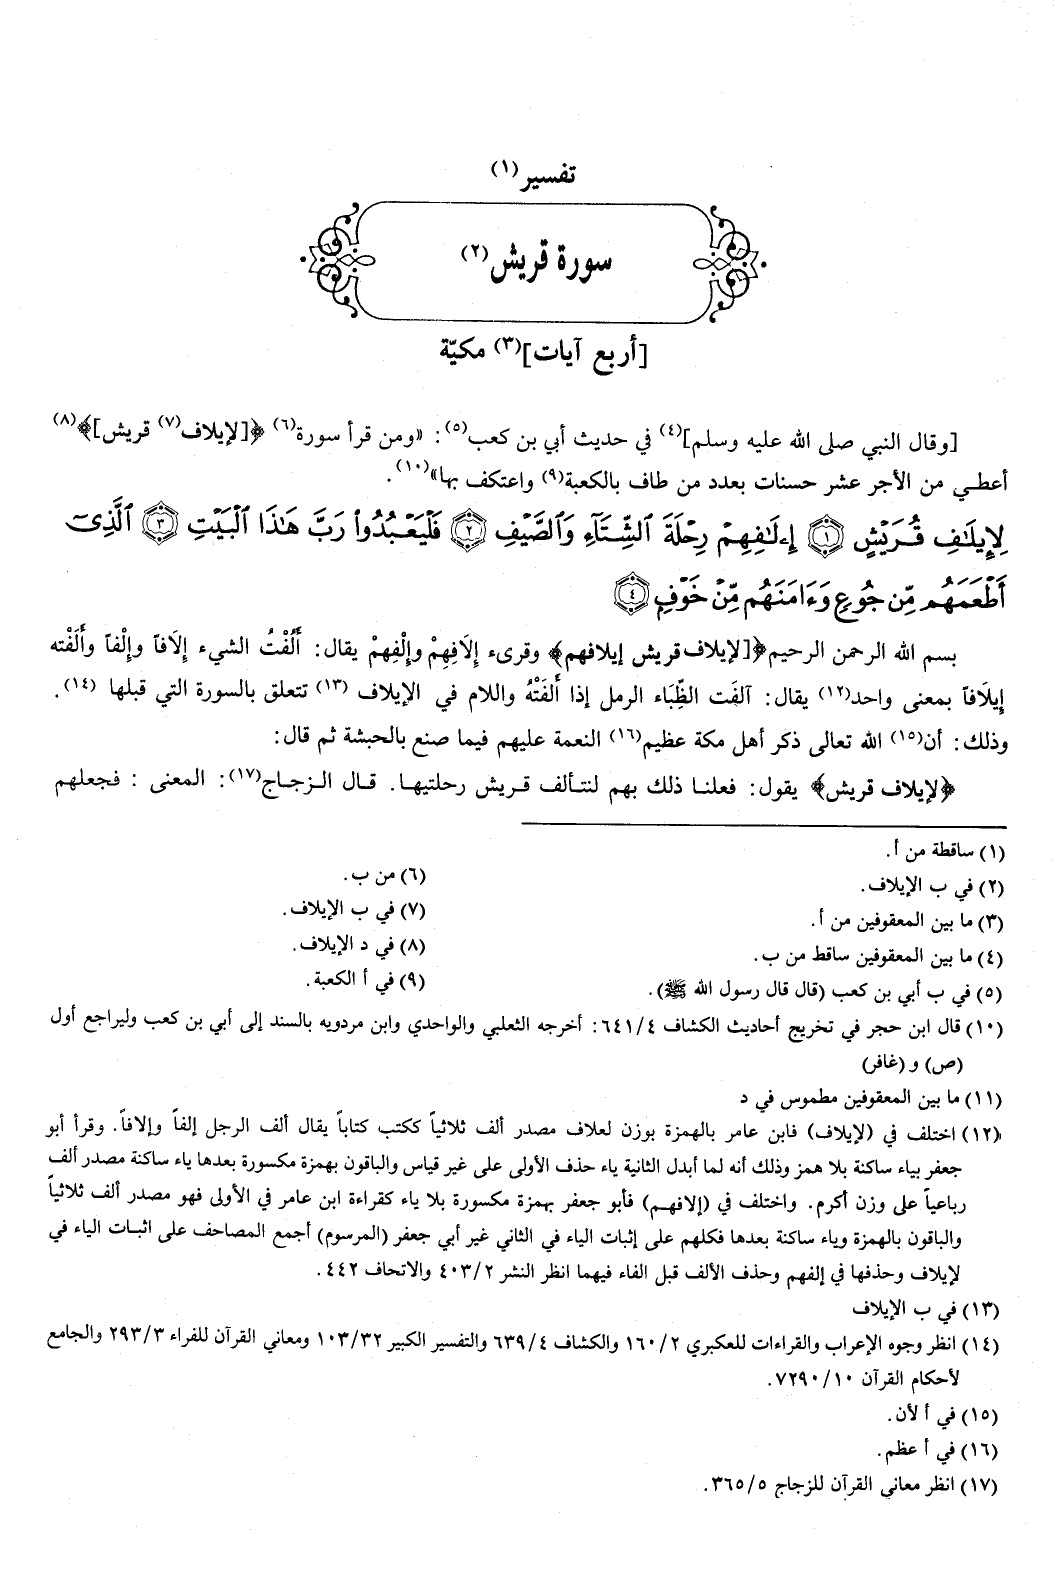 تفسير(١)
سورة قريش(٢)
[أربع آيات](٣) مكيّة
[وقال النبي صلى الله عليه وسلم](٤) في حديث أبي بن كعب(٥): «ومن قرأ سورة(٦) ﴿[لإيلاف(٧) قريش]﴾(٨)
أعطي من الأجر عشر حسنات بعدد من طاف بالكعبة(٩) واعتكف بها»(١٠).
لِإِيلَٰفِ قُرَيْشٍ ﴿١﴾ إِۦلَٰفِهِمْ رِحْلَةَ ٱلشِّتَآءِ وَٱلصَّيْفِ ﴿٢﴾ فَلْيَعْبُدُواْ رَبَّ هَٰذَا ٱلْبَيْتِ ﴿٣﴾ ٱلَّذِىٓ
أَطْعَمَهُم مِّن جُوعٍ وَءَامَنَهُم مِّنْ خَوْفٍ ﴿٤﴾
بسم الله الرحمن الرحيم ﴿[لإيلاف قريش إيلافهم﴾ وقرىء إِلَافِهِمْ وإِلْفِهِمْ يقال: أَلَفْتُ الشيء إِلَافاً وإِلْفاً وأَلَفْته
إِيلَافاً بمعنى واحد(١٢) يقال: آلفَت الظِّبَاء الرمل إذا أَلفَتْهُ واللام في الإيلاف (١٣) تتعلق بالسورة التي قبلها (١٤).
وذلك: أن(١٥) الله تعالى ذكر أهل مكة عظيم(١٦) النعمة عليهم فيما صنع بالحبشة ثم قال:
﴿لإيلاف قريش﴾ يقول: فعلنا ذلك بهم لنتألف قريش رحلتيها. قال الزجاج(١٧): المعنى : فجعلهم
(١) ساقطة من أ.
(٢) في ب الإيلاف.
(٣) ما بين المعقوفين من أ.
(٤) ما بين المعقوفين ساقط من ب.
(٥) في ب أبي بن كعب (قال قال رسول الله ﷺ).
(٦) من ب.
(٧) في ب الإيلاف.
(٨) في د الإيلاف.
(٩) في أ الكعبة.
(١٠) قال ابن حجر في تخريج أحاديث الكشاف ٦٤١/٤: أخرجه الثعلبي والواحدي وابن مردويه بالسند إلى أبي بن كعب وليراجع أول
(ص) و (غافر)
(١١) ما بين المعقوفين مطموس في د
(١٢) اختلف في (لإيلاف) فابن عامر بالهمزة بوزن لعلاف مصدر ألف ثلاثياً ككتب كتاباً يقال ألف الرجل إلفاً وإلافاً. وقرأ أبو
جعفر بياء ساكنة بلا همز وذلك أنه لما أبدل الثانية ياء حذف الأولى على غير قياس والباقون بهمزة مكسورة بعدها ياء ساكنة مصدر ألف
رباعياً على وزن أكرم. واختلف في (إلافهم) فأبو جعفر بهمزة مكسورة بلا ياء كقراءة ابن عامر في الأولى فهو مصدر ألف ثلاثياً
والباقون بالهمزة وياء ساكنة بعدها فكلهم على إثبات الياء في الثاني غير أبي جعفر (المرسوم) أجمع المصاحف على اثبات الياء في
لإيلاف وحذفها في إلفهم وحذف الألف قبل الفاء فيهما انظر النشر ٤٠٣/٢ والاتحاف ٤٤٢.
(١٣) في ب الإيلاف
(١٤) انظر وجوه الإعراب والقراءات للعكبري ١٦٠/٢ والكشاف ٦٣٩/٤ والتفسير الكبير ١٠٣/٣٢ ومعاني القرآن للفراء ٢٩٣/٣ والجامع
لأحكام القرآن ٧٢٩٠/١٠.
(١٥) في أ لأن.
(١٦) في أ عظم.
(١٧) انظر معاني القرآن للزجاج ٣٦٥/٥.